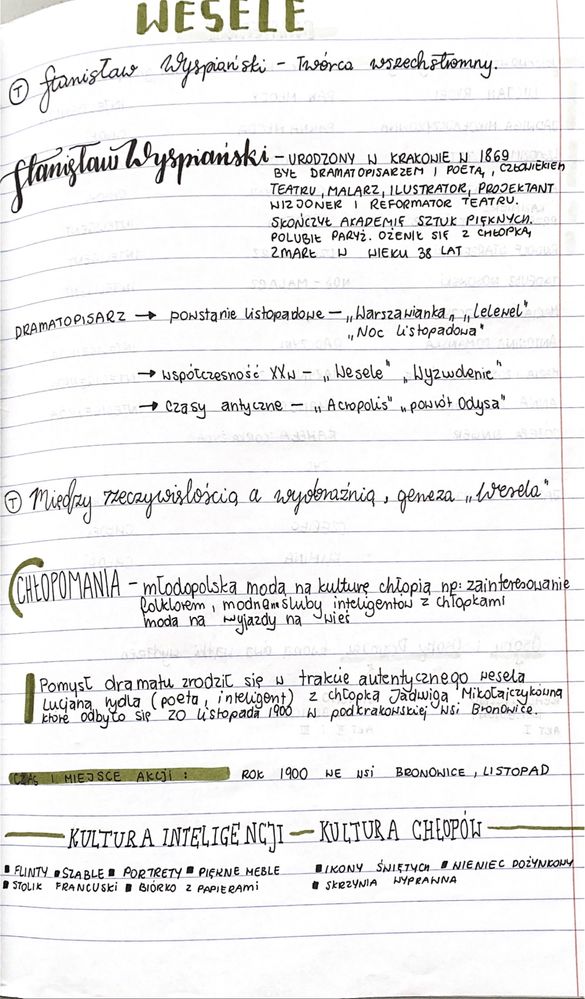 WESELE
T Stanisław Wyspiański - Twórca wszechstronny.
Stanisław Wyspiański - URODZONY W KRAKOWIE W 1869
BYŁ DRAMATOPISARZEM I POETĄ, CZŁOWIEKIEM
TEATRU, MALARZ, ILUSTRATOR, PROJEKTANT
WIZJONER I REFORMATOR TEATRU.
SKOŃCZYŁ AKADEMIĘ SZTUK PIĘKNYCH.
POLUBIŁ PARYŻ. OŻENIŁ SIĘ Z CHŁOPKĄ,
ZMARŁ W WIEKU 38 LAT
DRAMATOPISARZ → powstanie listopadowe - „Warszawianka„ „Lelewel"
„Noc listopadowa"
→ współczesność XXw - „Wesele" „Wyzwolenie"
→ czasy antyczne - „Acropolis" „powrót Odysa"
T Między rzeczywistością a wyobraźnią, geneza „Wesela"
CHŁOPOMANIA - młodopolska moda na kulturę chłopią np: zainteresowanie
folklorem, modna śluby inteligentów z chłopkami
moda na wyjazdy na wieś
Pomysł dramatu zrodził się w trakcie autentycznego wesela
Lucjana rydla (poeta, inteligent) z chłopką Jadwigą Mikołajczykówną
które odbyło się 20 listopada 1900 w podkrakowskiej wsi Bronowice.
CZAS I MIEJSCE AKCJI: ROK 1900 WE WSI BRONOWICE, LISTOPAD
KULTURA INTELIGENCJI - KULTURA CHŁOPÓW
▪ FLINTY ▪ SZABLE ▪ PORTRETY ▪ PIĘKNE MEBLE ▪ IKONY ŚWIĘTYCH ▪ WIENIEC DOŻYNKOWY
▪ STOLIK FRANCUSKI ▪ BIÓRKO Z PAPIERAMI ▪ SKRZYNIA WYPRAWNA